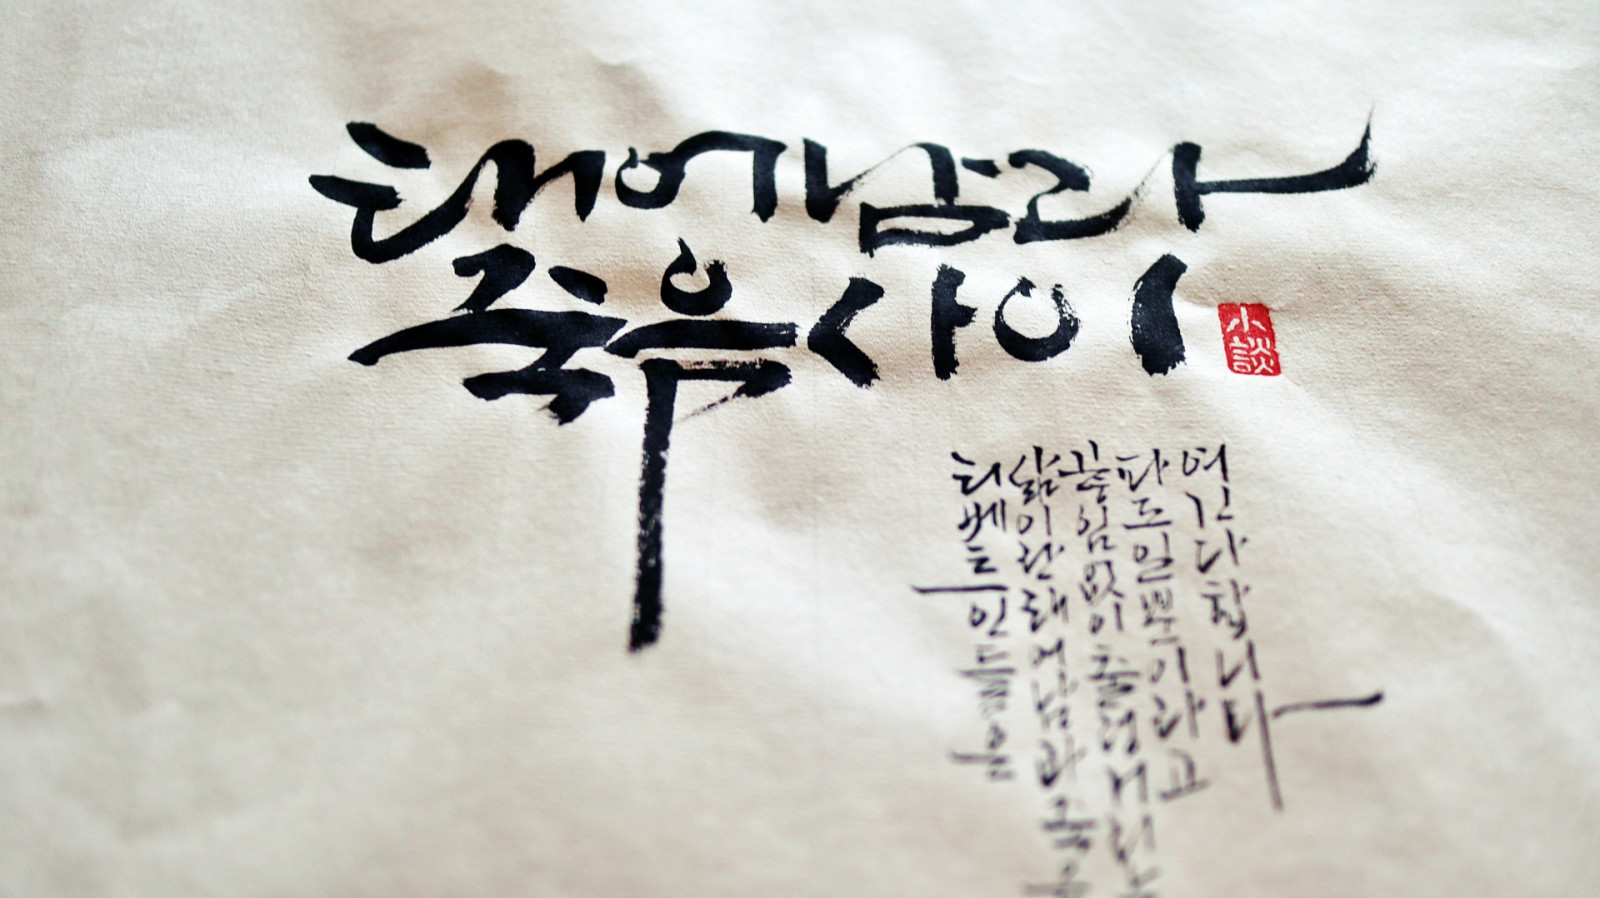 태어남과
죽음사이
小談
티베트인들은
삶이란 태어남과 죽음
끊임없이 출렁거리는
파도일뿐이라고
여긴다합니다